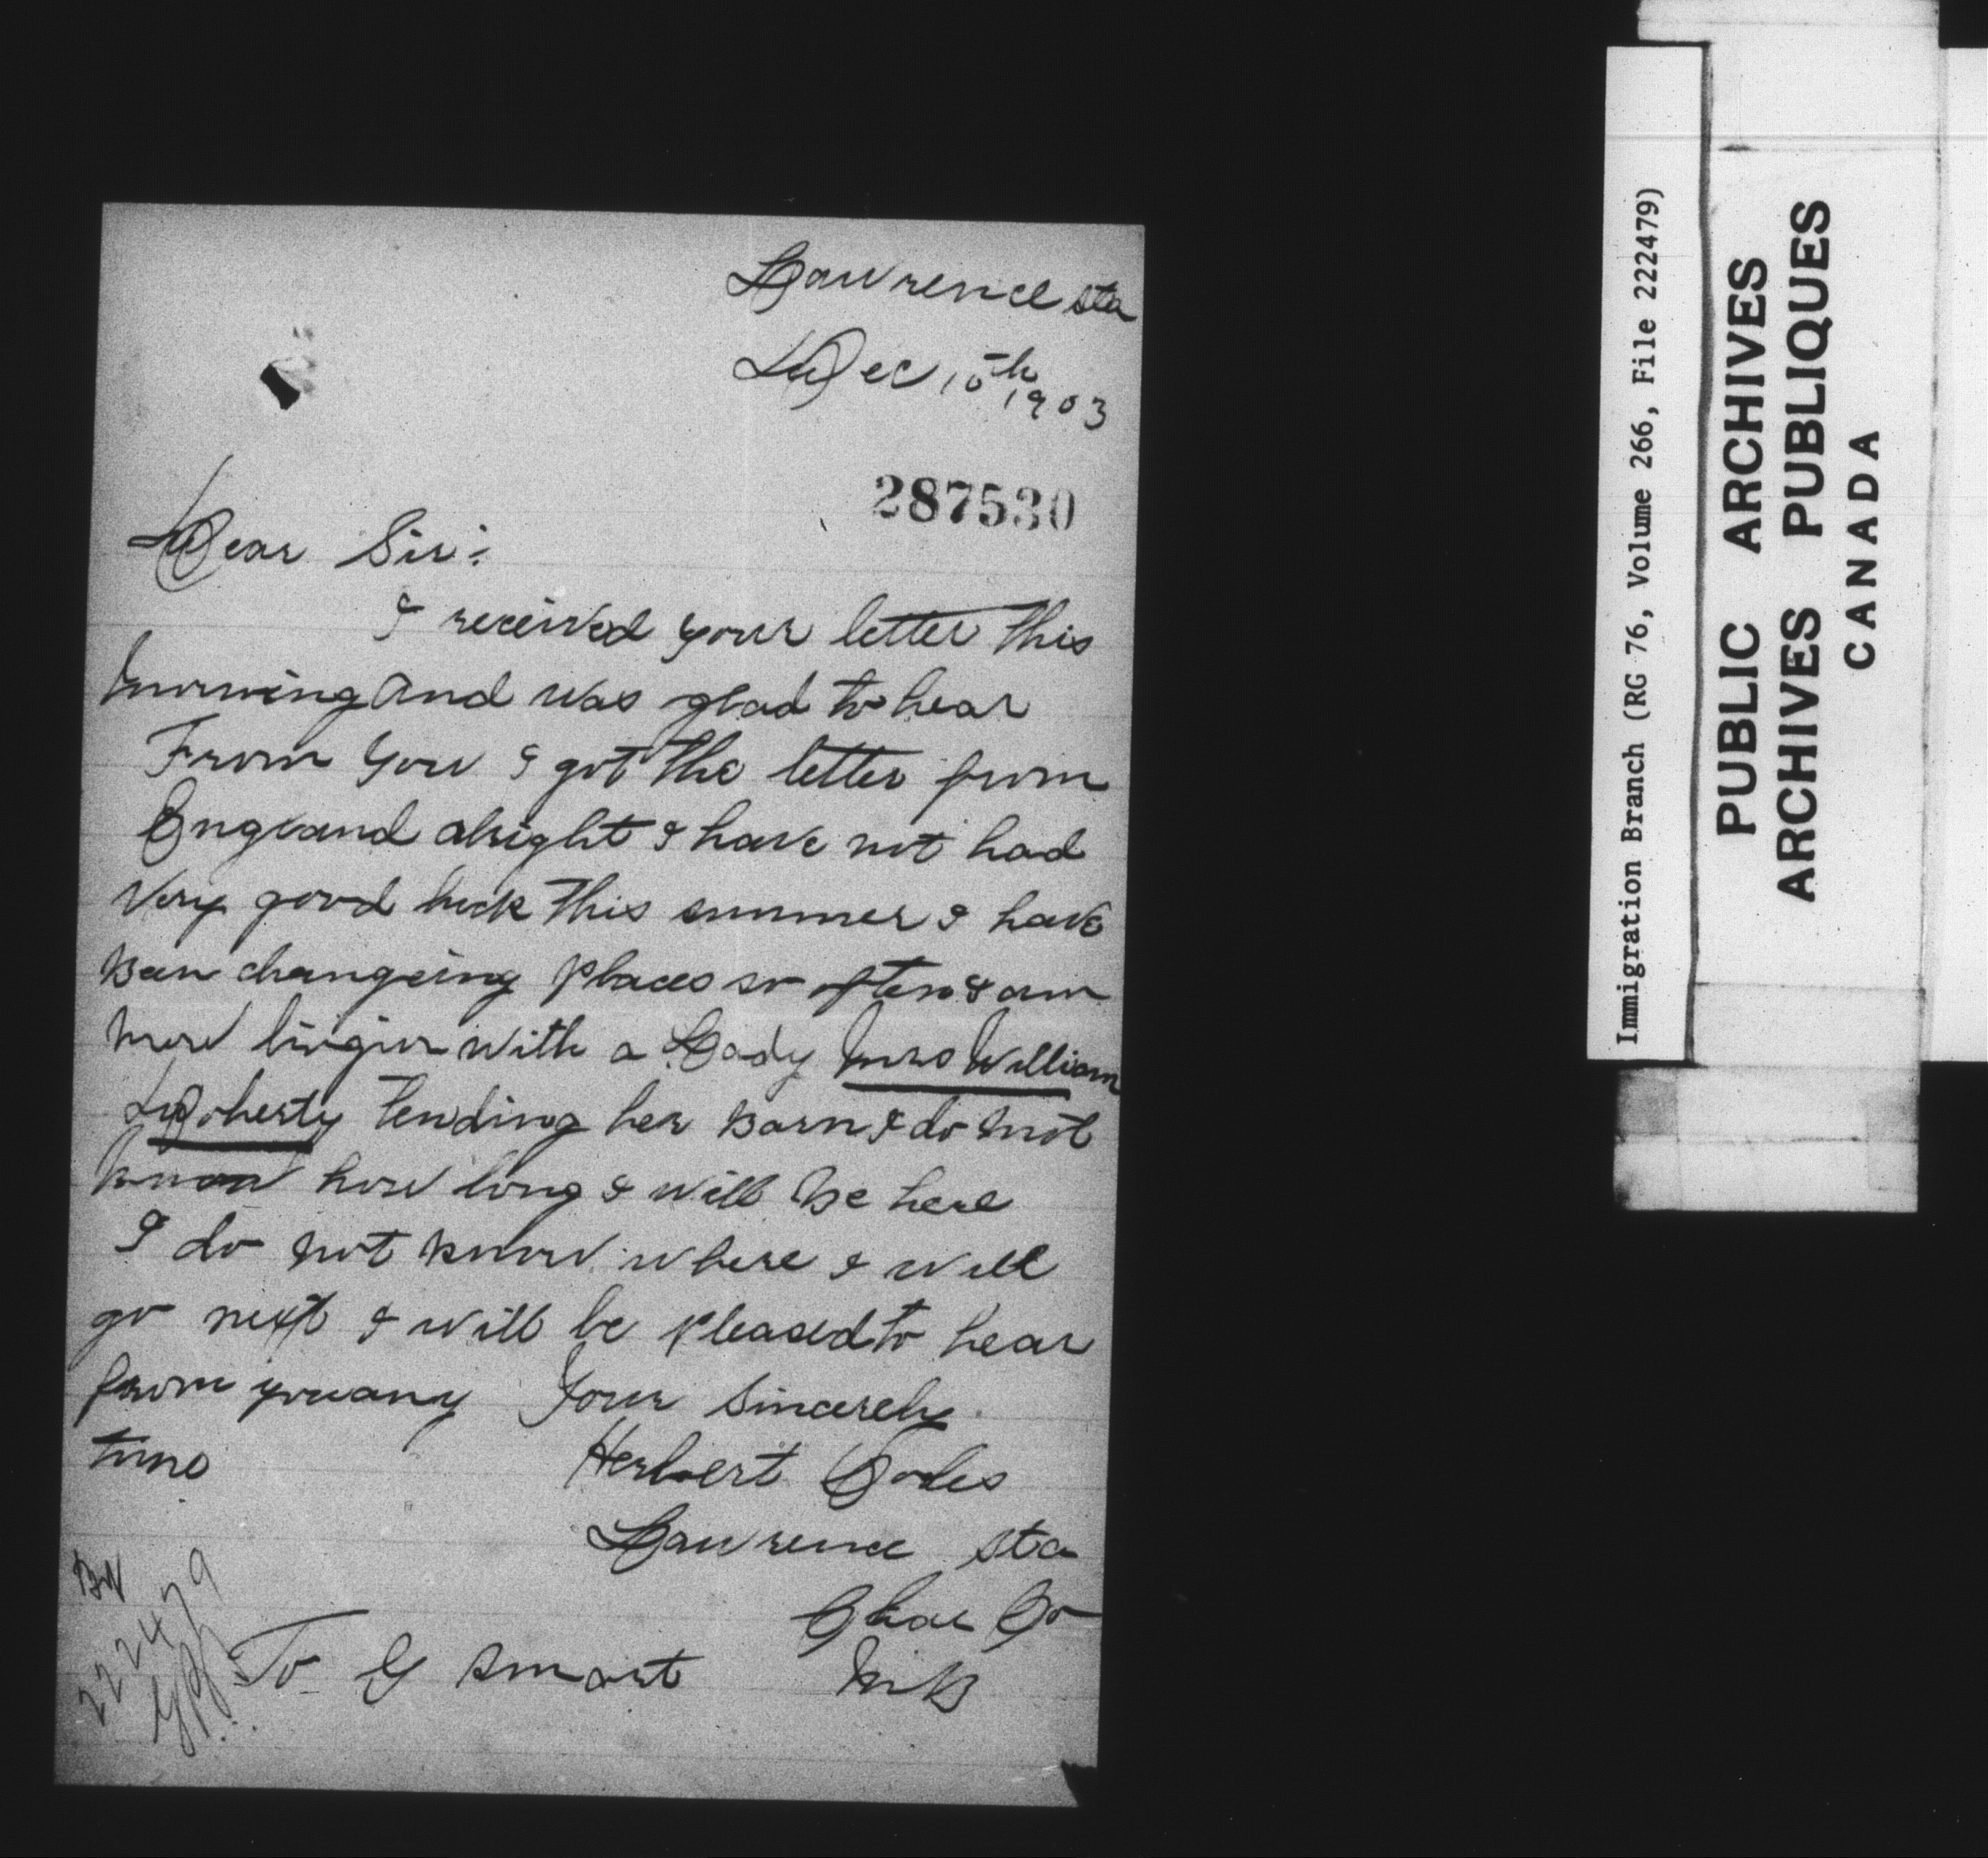 Lawrence sta
Dec 10th
1903
287530
Dear Sir:
I received your letter this
morning and was glad to hear
From you I got the letter from
England alright I have not had
Very good luck this summer I have
Ben changeing places so often I am
now livgin with a Lady Mrs William
Doherty tending her Barn I do not
know how long I will Be here
I do not know where I will
go next I will be pleased to hear
from you any Your Sincerely
time
Herbert Coles
Lawrence sta
Char Co
NB
To G Smart
222479
Immigration Branch (RG 76, Volume 266, File 222479)
PUBLIC ARCHIVES
ARCHIVES PUBLIQUES
CANADA